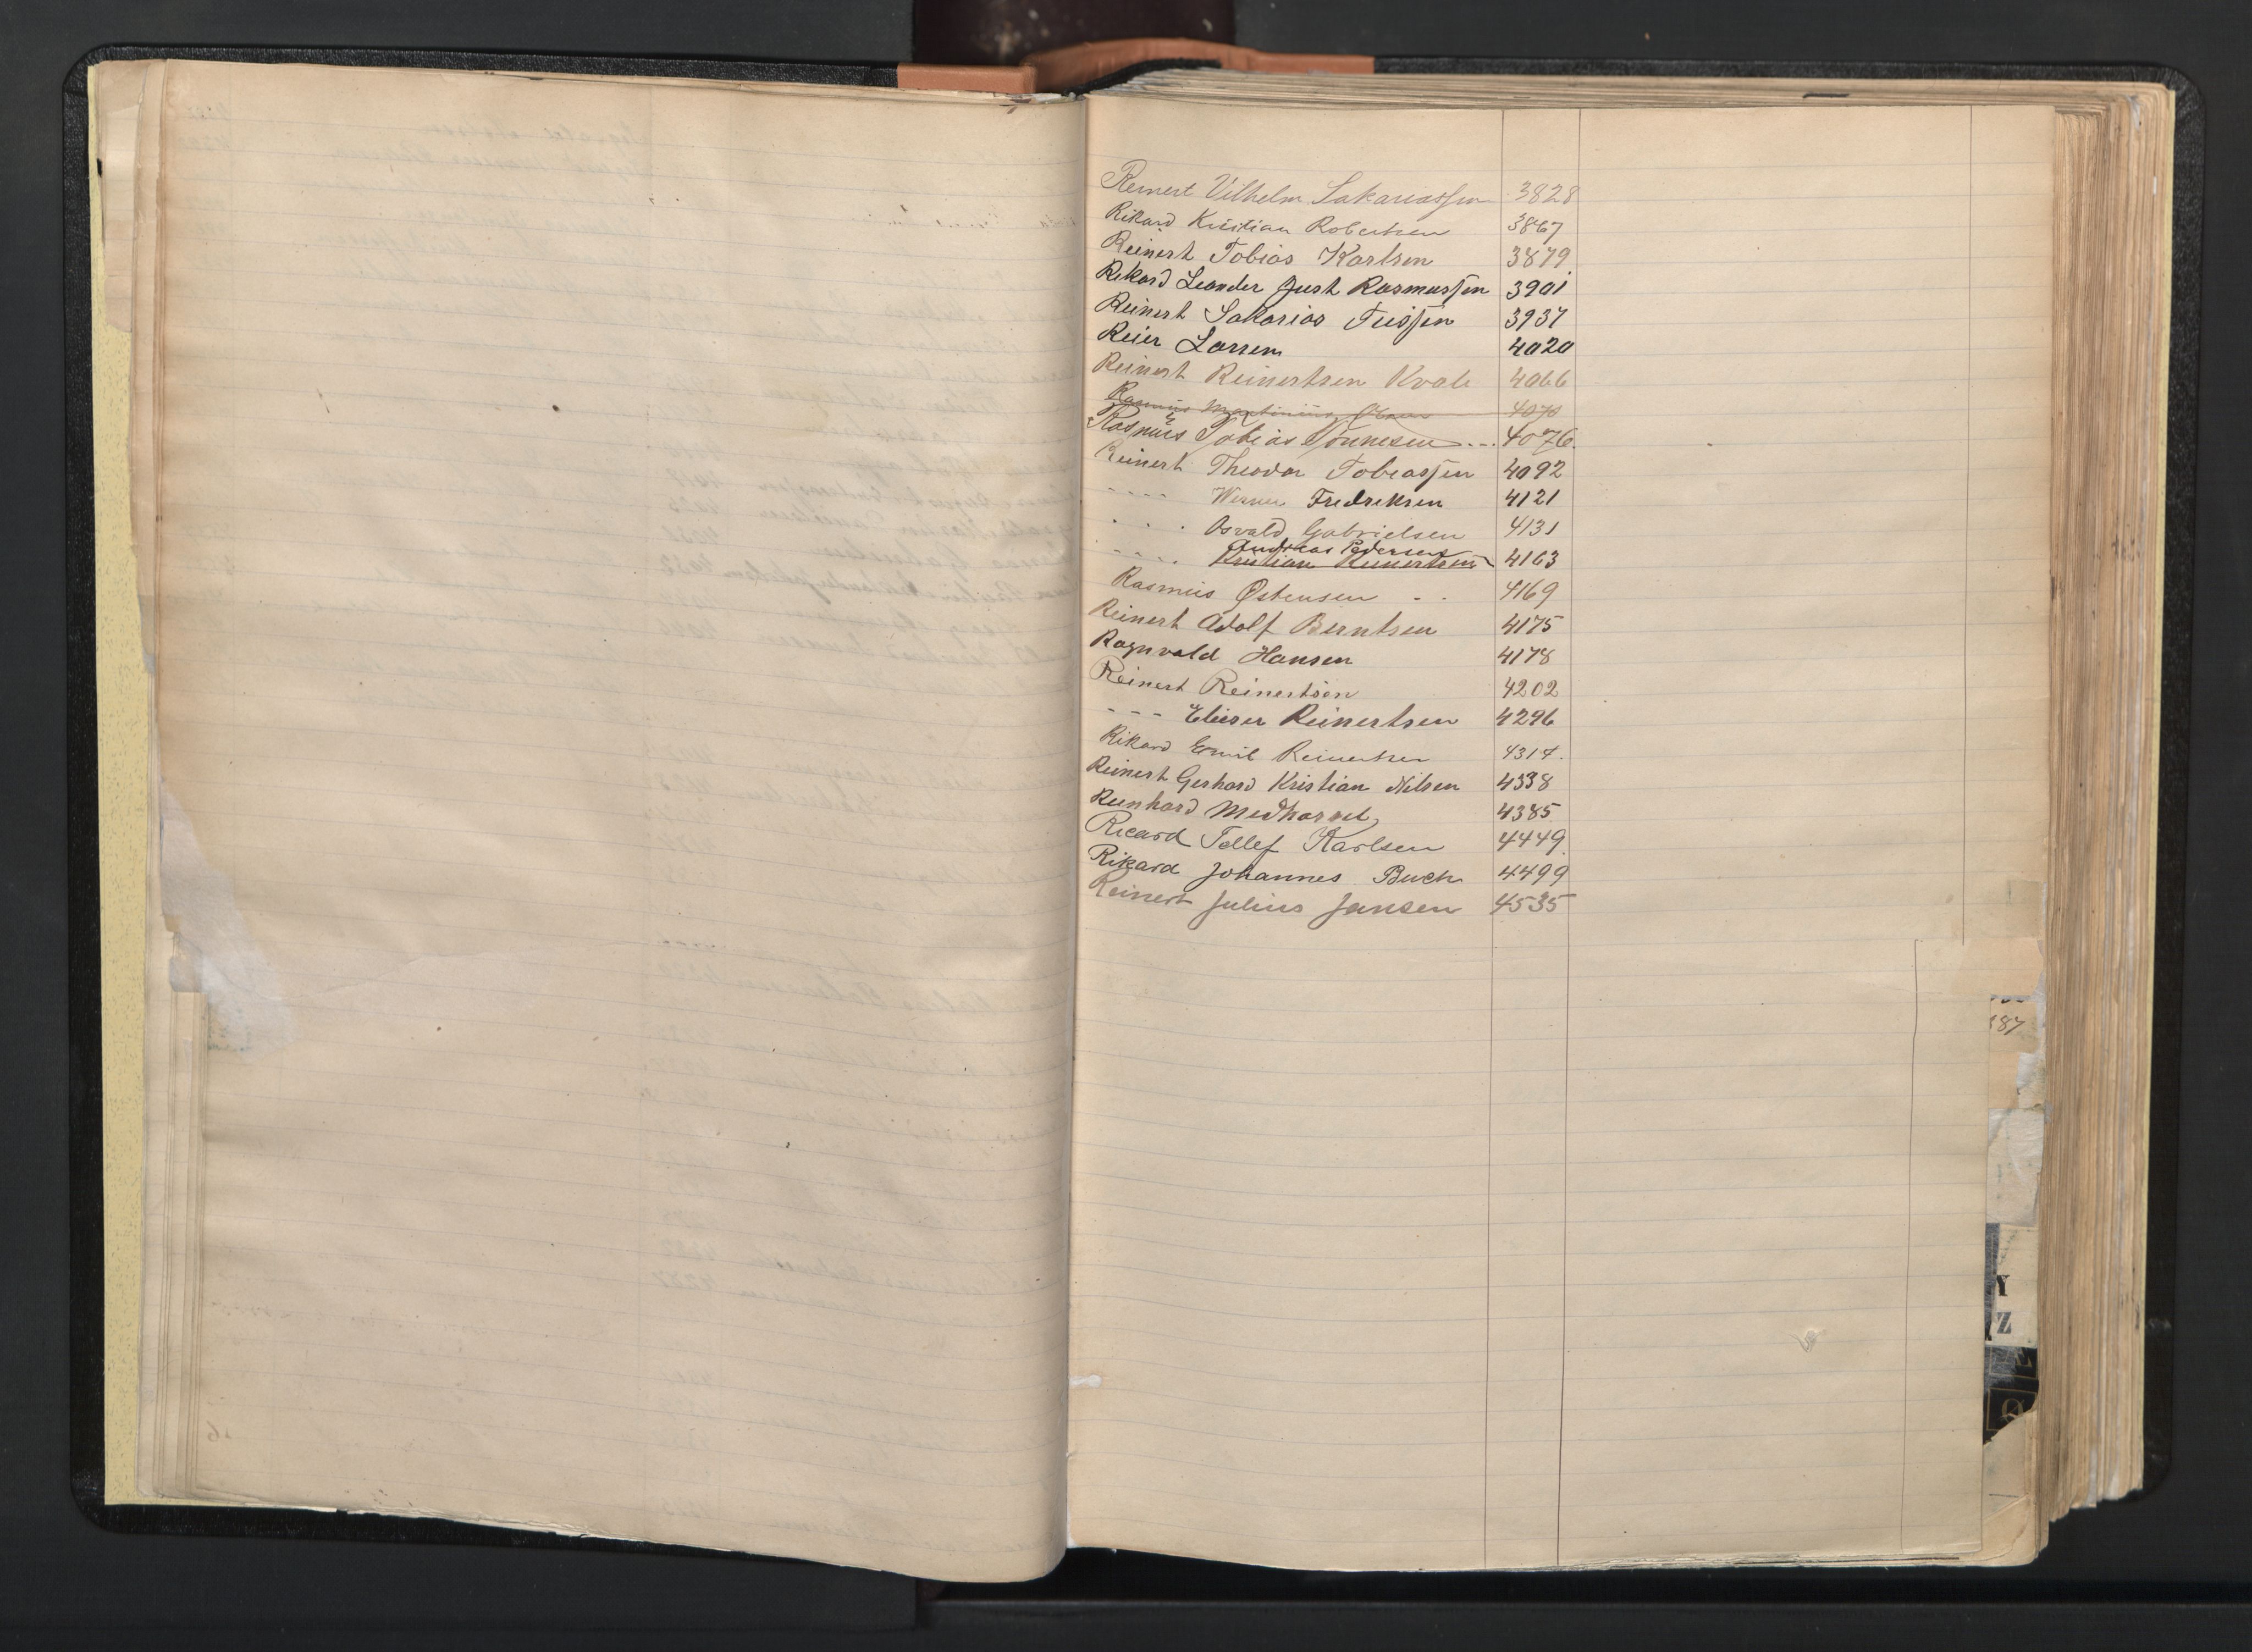 Reinert Vilhelm Sakariassen 3828
Rikard Kristian Robertsen 3867
Reinert Tobias Karlsen 3879
Rikard Leander Just Rasmussen 3901
Reinert Sakarias Tussen 3937
Reier Larsen 4020
Reinert Reinertsen Kvale 4066
Rasmus Martinius Olsen 4070
Rasmus Tobias Tönnesen 4076.
Reinert Theodor Tobiassen 4092
---- Werner Fredriksen 4121
. . . Osvald Gabrielsen 4131
Andreas Pedersen
---- Kristian Reinertsen 4163
Rasmus Østensen - - 4169
Reinert Adolf Berntsen 4175
Ragnvald Hansen 4178
Reinert Reinertsen 4202
--- Elieser Reinertsen 4296
Rikard Emil Reinertsen 4317.
Reinert Gerhard Kristian Nilsen 4338
Reinhard 4385
Ricard Tellef Karlsen 4449
Rikard Johannes Buch 4499
Reinert Julius Jansen 4535
187
Y
Z
Q